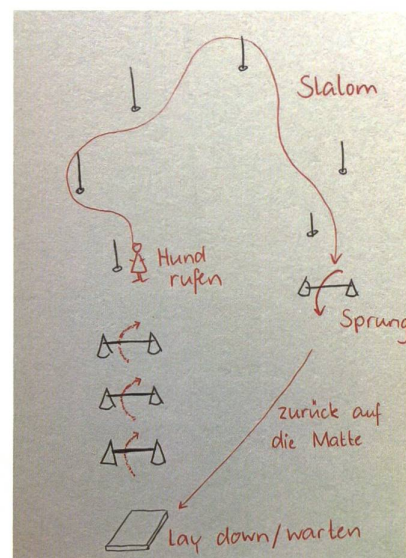 Slalom
Hund
rufen
Sprung
zurück auf
die Matte
Lay down/warten